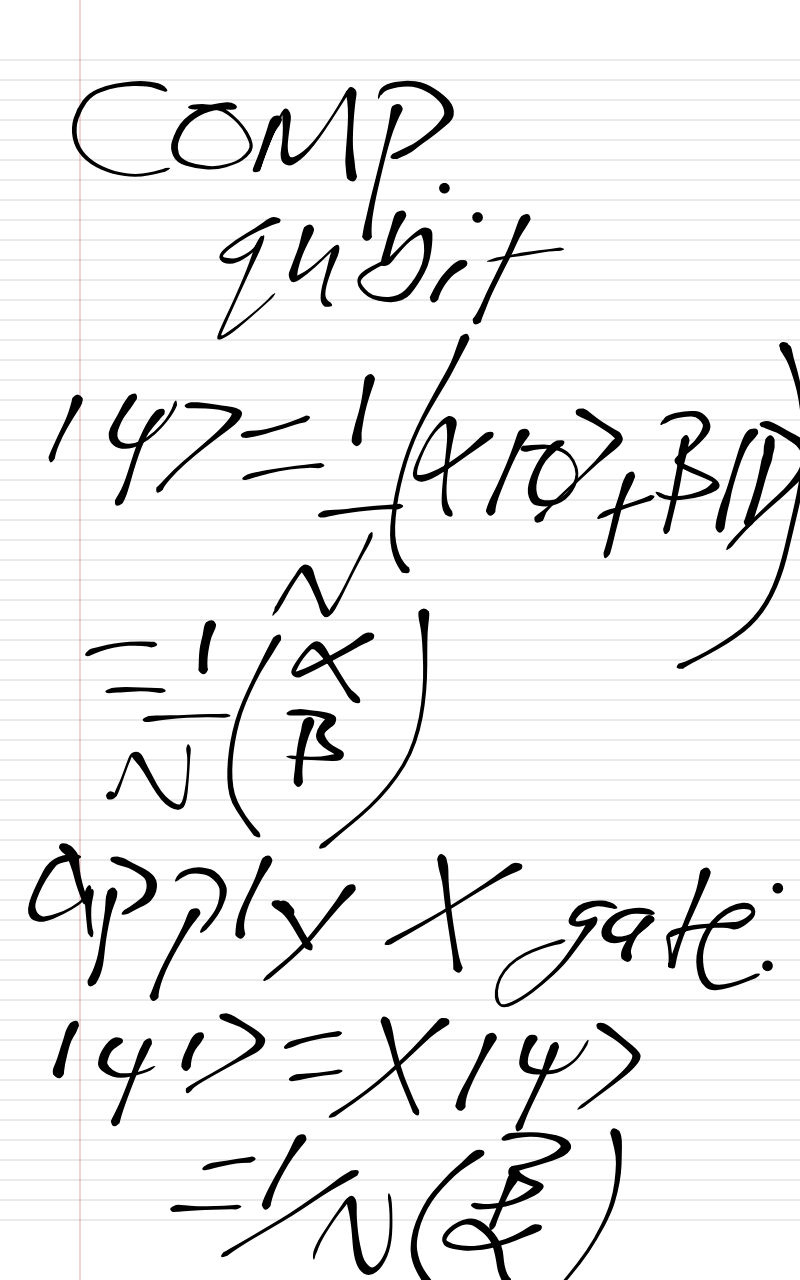 COMP.
qubit
|ψ> = 1/N (α|0> + β|1>)
= 1/N (α β)
apply X gate:
|ψ'> = X|ψ>
= 1/N (β α)